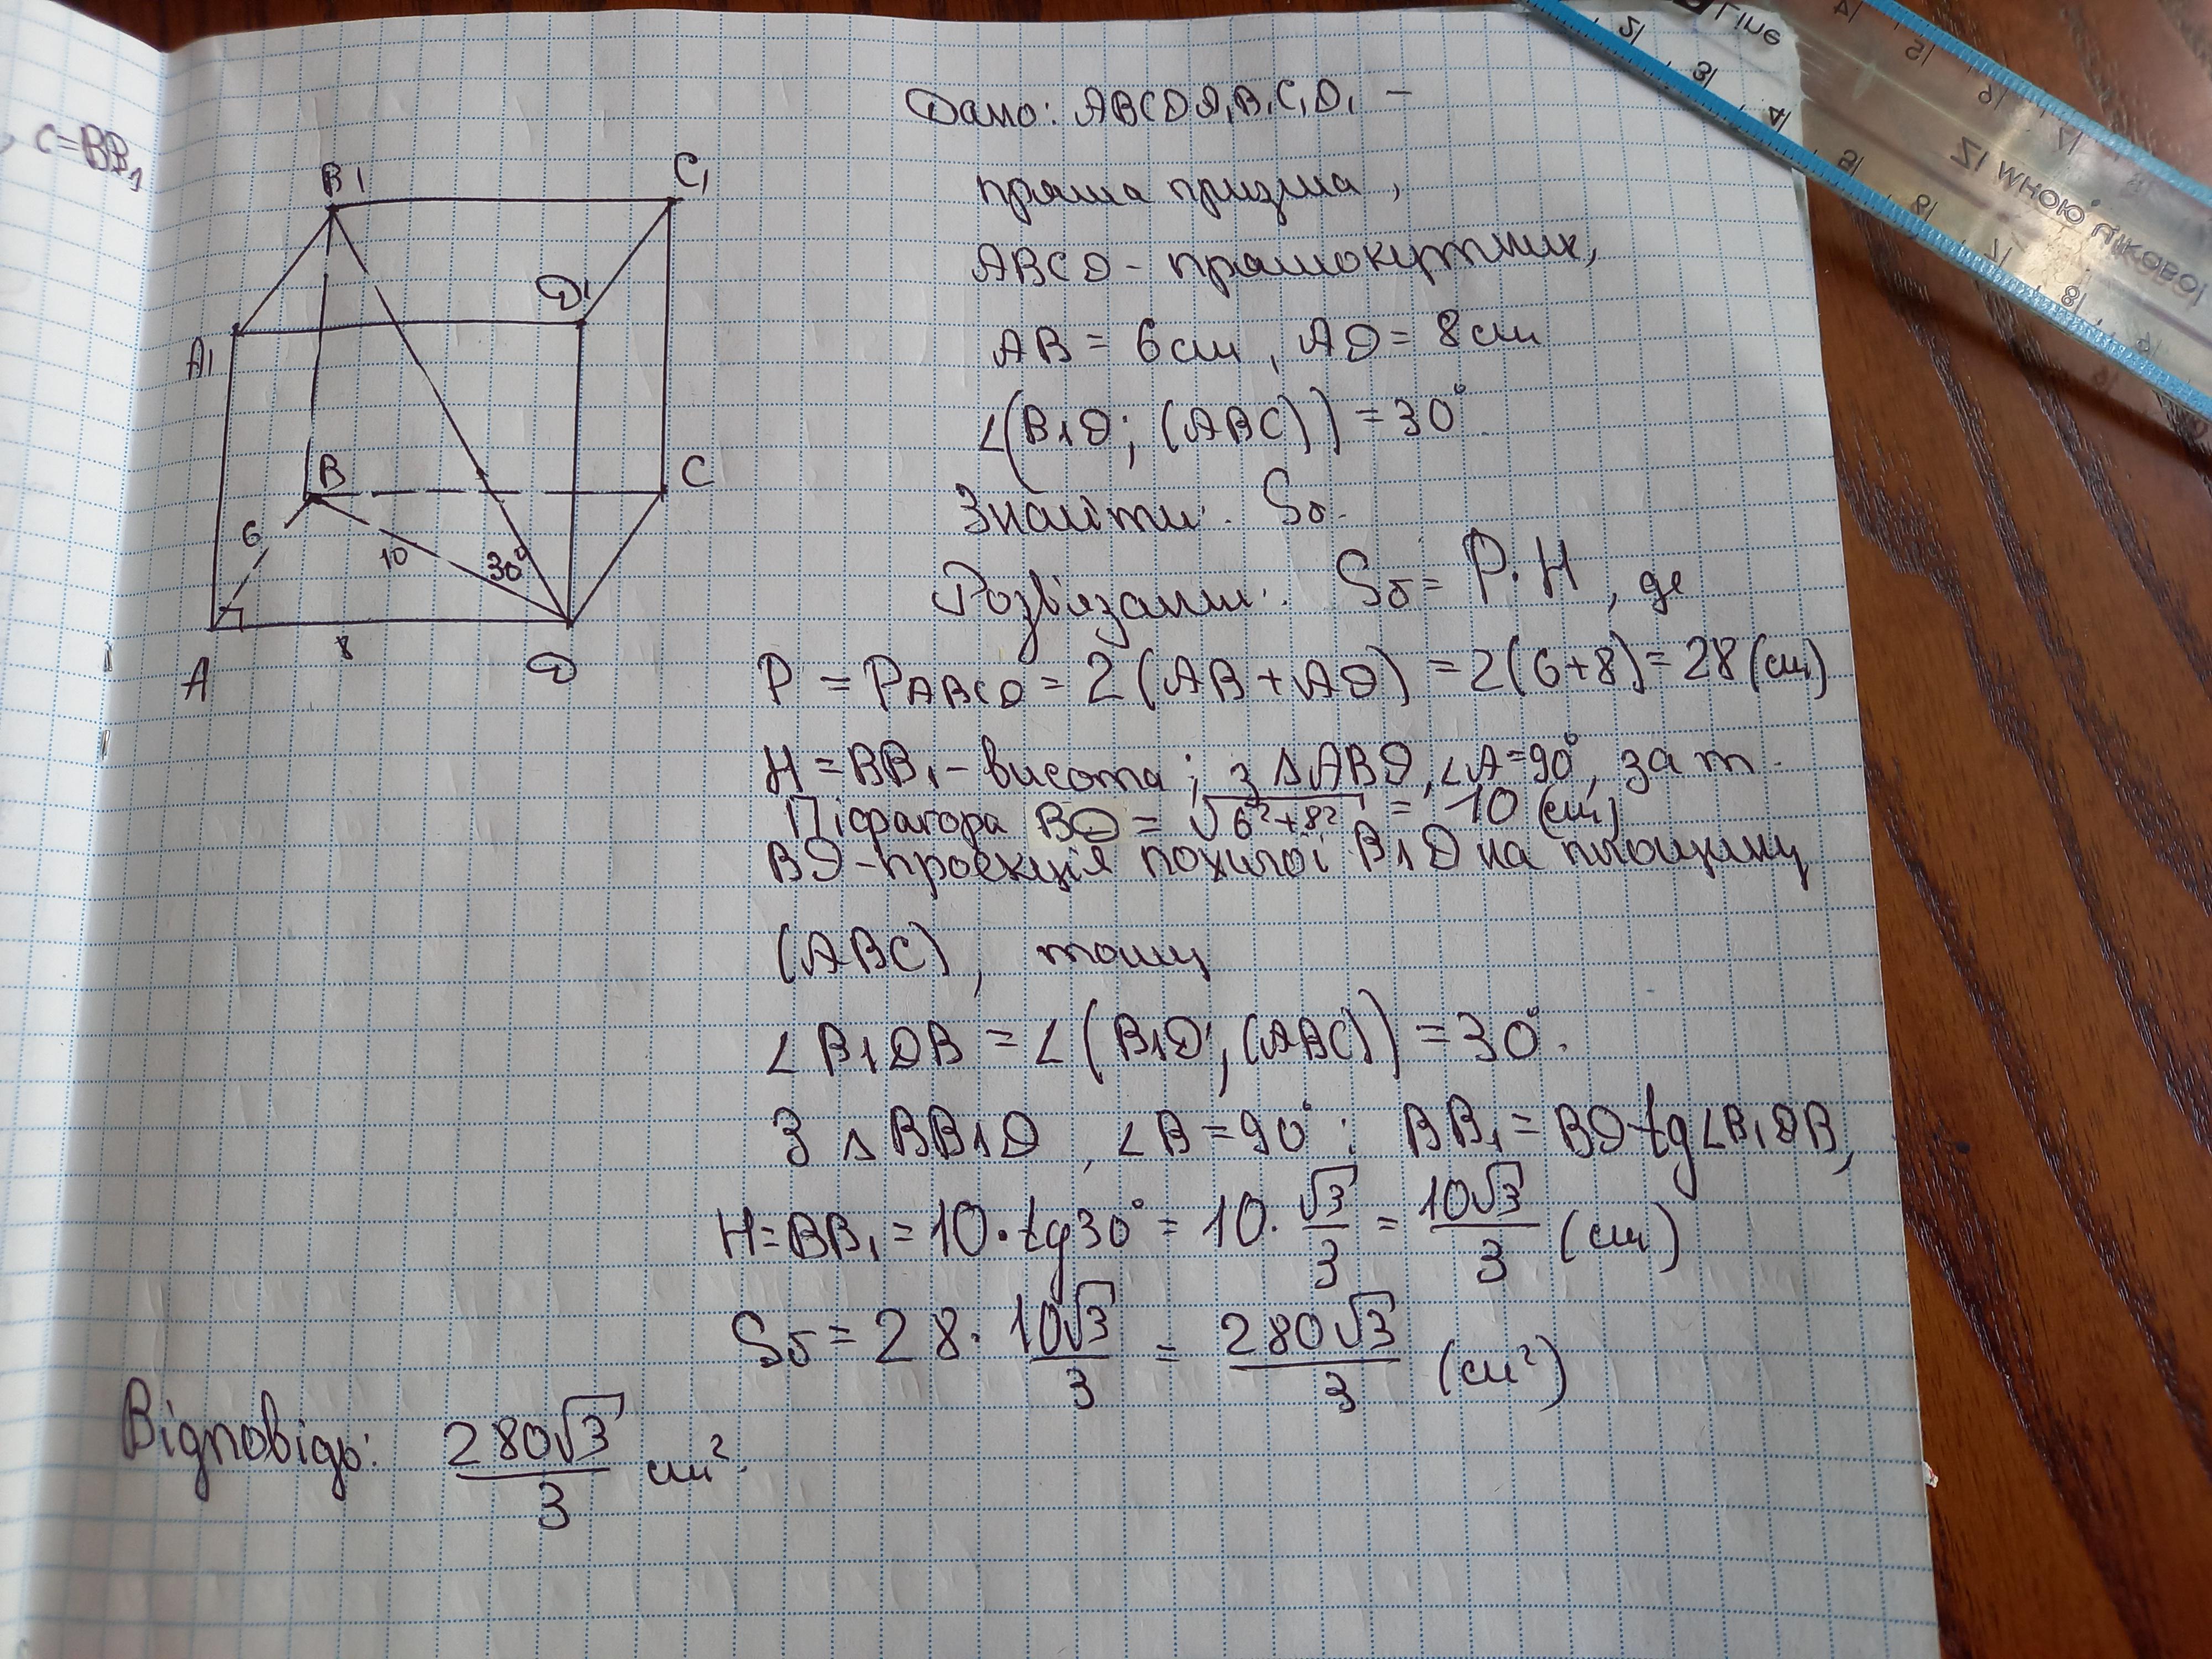 , c=BB₁
Дано: ABCDA₁B₁C₁D₁ –
пряма призма,
ABCD - прямокутник,
AB = 6см, AD = 8см
∠(B1D; (ABC)) = 30°.
Знайти: Sб.
Розв'язання: Sб = P·H, де
P = PABCD = 2(AB+AD) = 2(6+8) = 28(см)
H = BB₁ - висота; з ΔABD, ∠A=90°, за т.
Піфагора BD = √6²+8² = 10 (см)
BD-проекція похилої B1D на площину
(ABC), тому
∠B1DB = ∠(B1D; (ABC)) = 30°.
З ΔBB1D, ∠B = 90°: BB₁ = BD tg∠B₁DB,
H=BB₁ = 10·tg30° = 10·√3/3 = 10√3/3 (см)
Sб = 28·10√3/3 = 280√3/3 (см²)
Відповідь: 280√3/3 см².
B1
C1
A1
D1
B
C
6
10
30°
A
8
D
Line